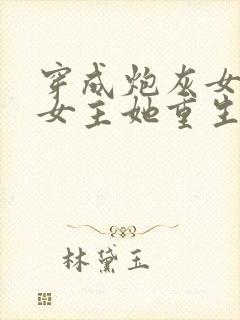 穿成炮灰女
女主她重生
林黛玉